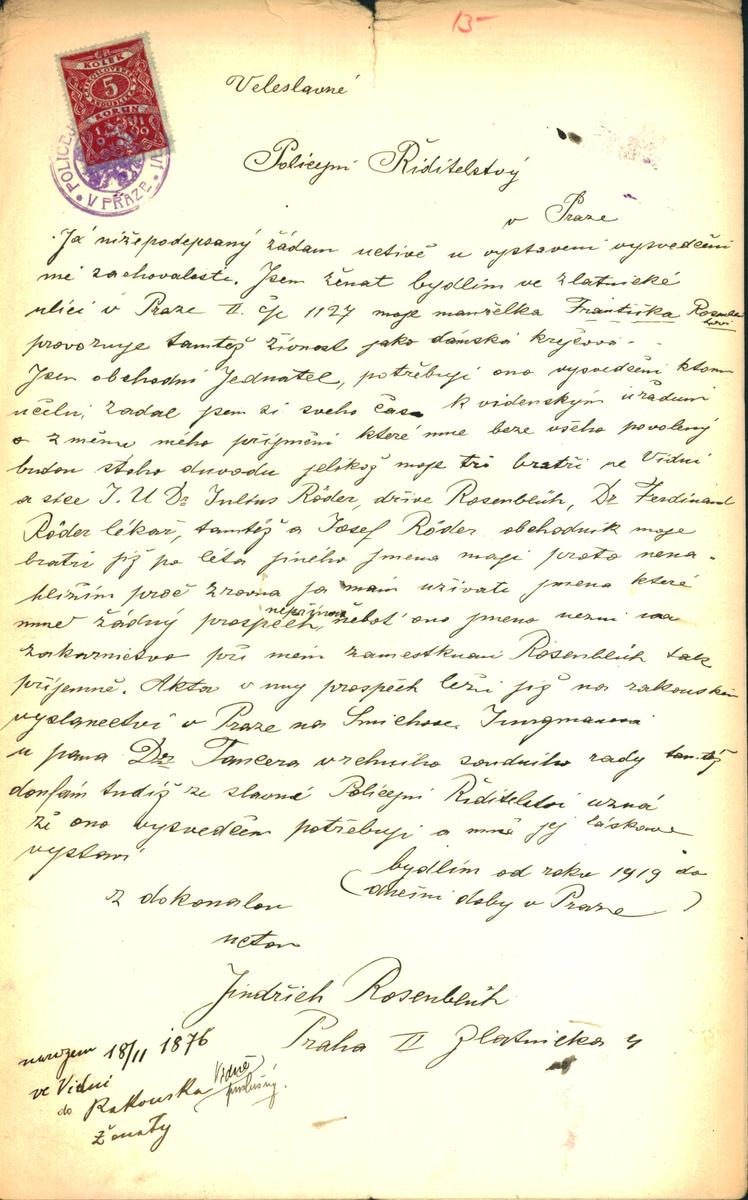 13-
KOLEK
5
KORUN
1919
POLICEJNÍ
V PRAZE
Veleslavné
Policejní Řiditelstvý
v Praze
Já nížepodepsaný žádam uctivě u vystavení vysvedčení
mé zachovalosti. Jsem ženat bydlím ve zlatnické
ulici v Praze II. čp 1127 moje manželka Františka Rosenblü
hová
provozuje tamtéž živnost jako dámská krejčová -
Jsem obchodní jednatel, potřebuji ono vysvedčení ktomu
učelu, žadal jsem si sveho času k videnským uřadum
o změnu mého příjmění které mne beze všeho povolený
budou stoho duvodu jelikož moje tři bratři ve Vídni
a sice J. U Dr Julius Röder, dříve Rosenblüh, Dr Ferdinand
Röder lékař, tamtéž a Josef Röder obchodnik moje
bratři již po léta jiného jmena maji proto nena-
hližím proč zrovna ja mám užívati jmena které
mně žádný prospěch nepřináší, neboť ono jmeno nezní na
zakaznictvo při mém zamestknani Rosenblüh tak
příjemně. Akta v muj prospěch leží již na rakouském
vyslanectví v Praze na Smichove Jungmanova
u pana Dra Tancera vrchního soudního rady tamtéž
doufám tudiž ze slavné Policejní Řiditelství uzná
že ono vysvedčení potřebuji a mně jej láskavě
vystaví
(bydlím od roku 1919 do
dnešní doby v Praze)
z dokonalou
uctou
Jindřich Rosenblüh
Praha II Zlatnička 4
narozen 18/II 1876
ve Vídni
do Rakouska Vídně
příslušný.
ženatý